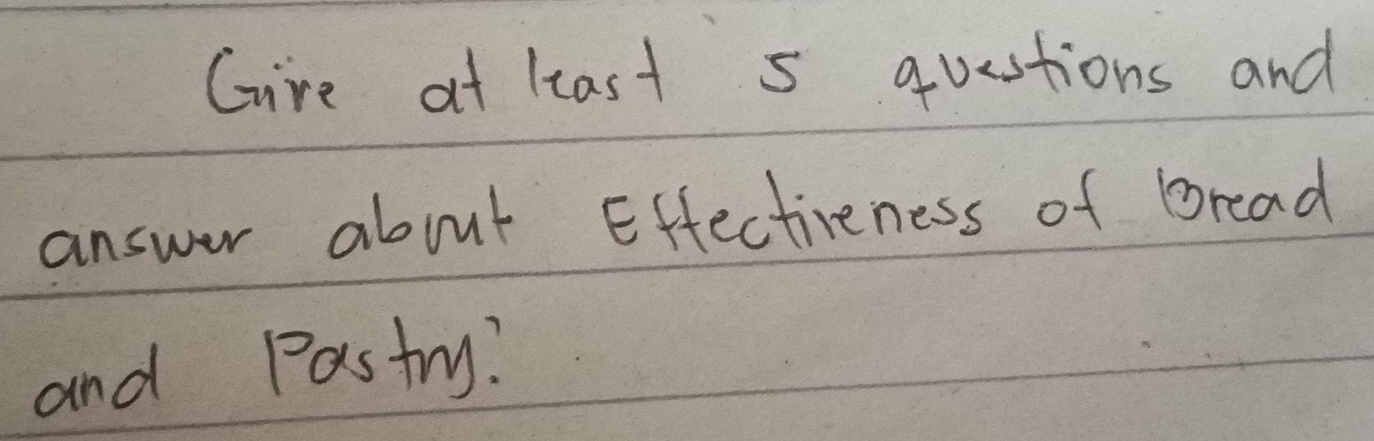 Give at least 5 questions and
answer about Effectiveness of Bread
and Pastry?